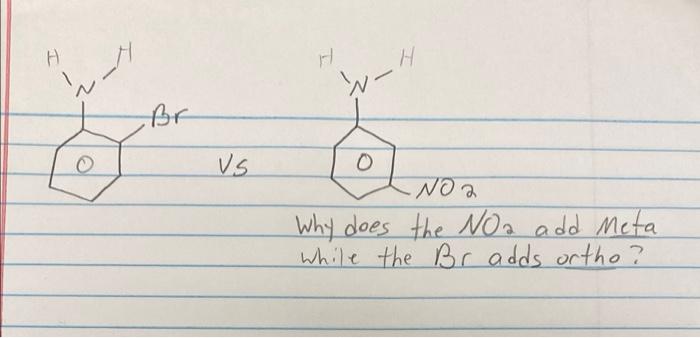 H H H H
N N
Br
VS
NO2
Why does the NO2 add Meta
while the Br adds ortho?